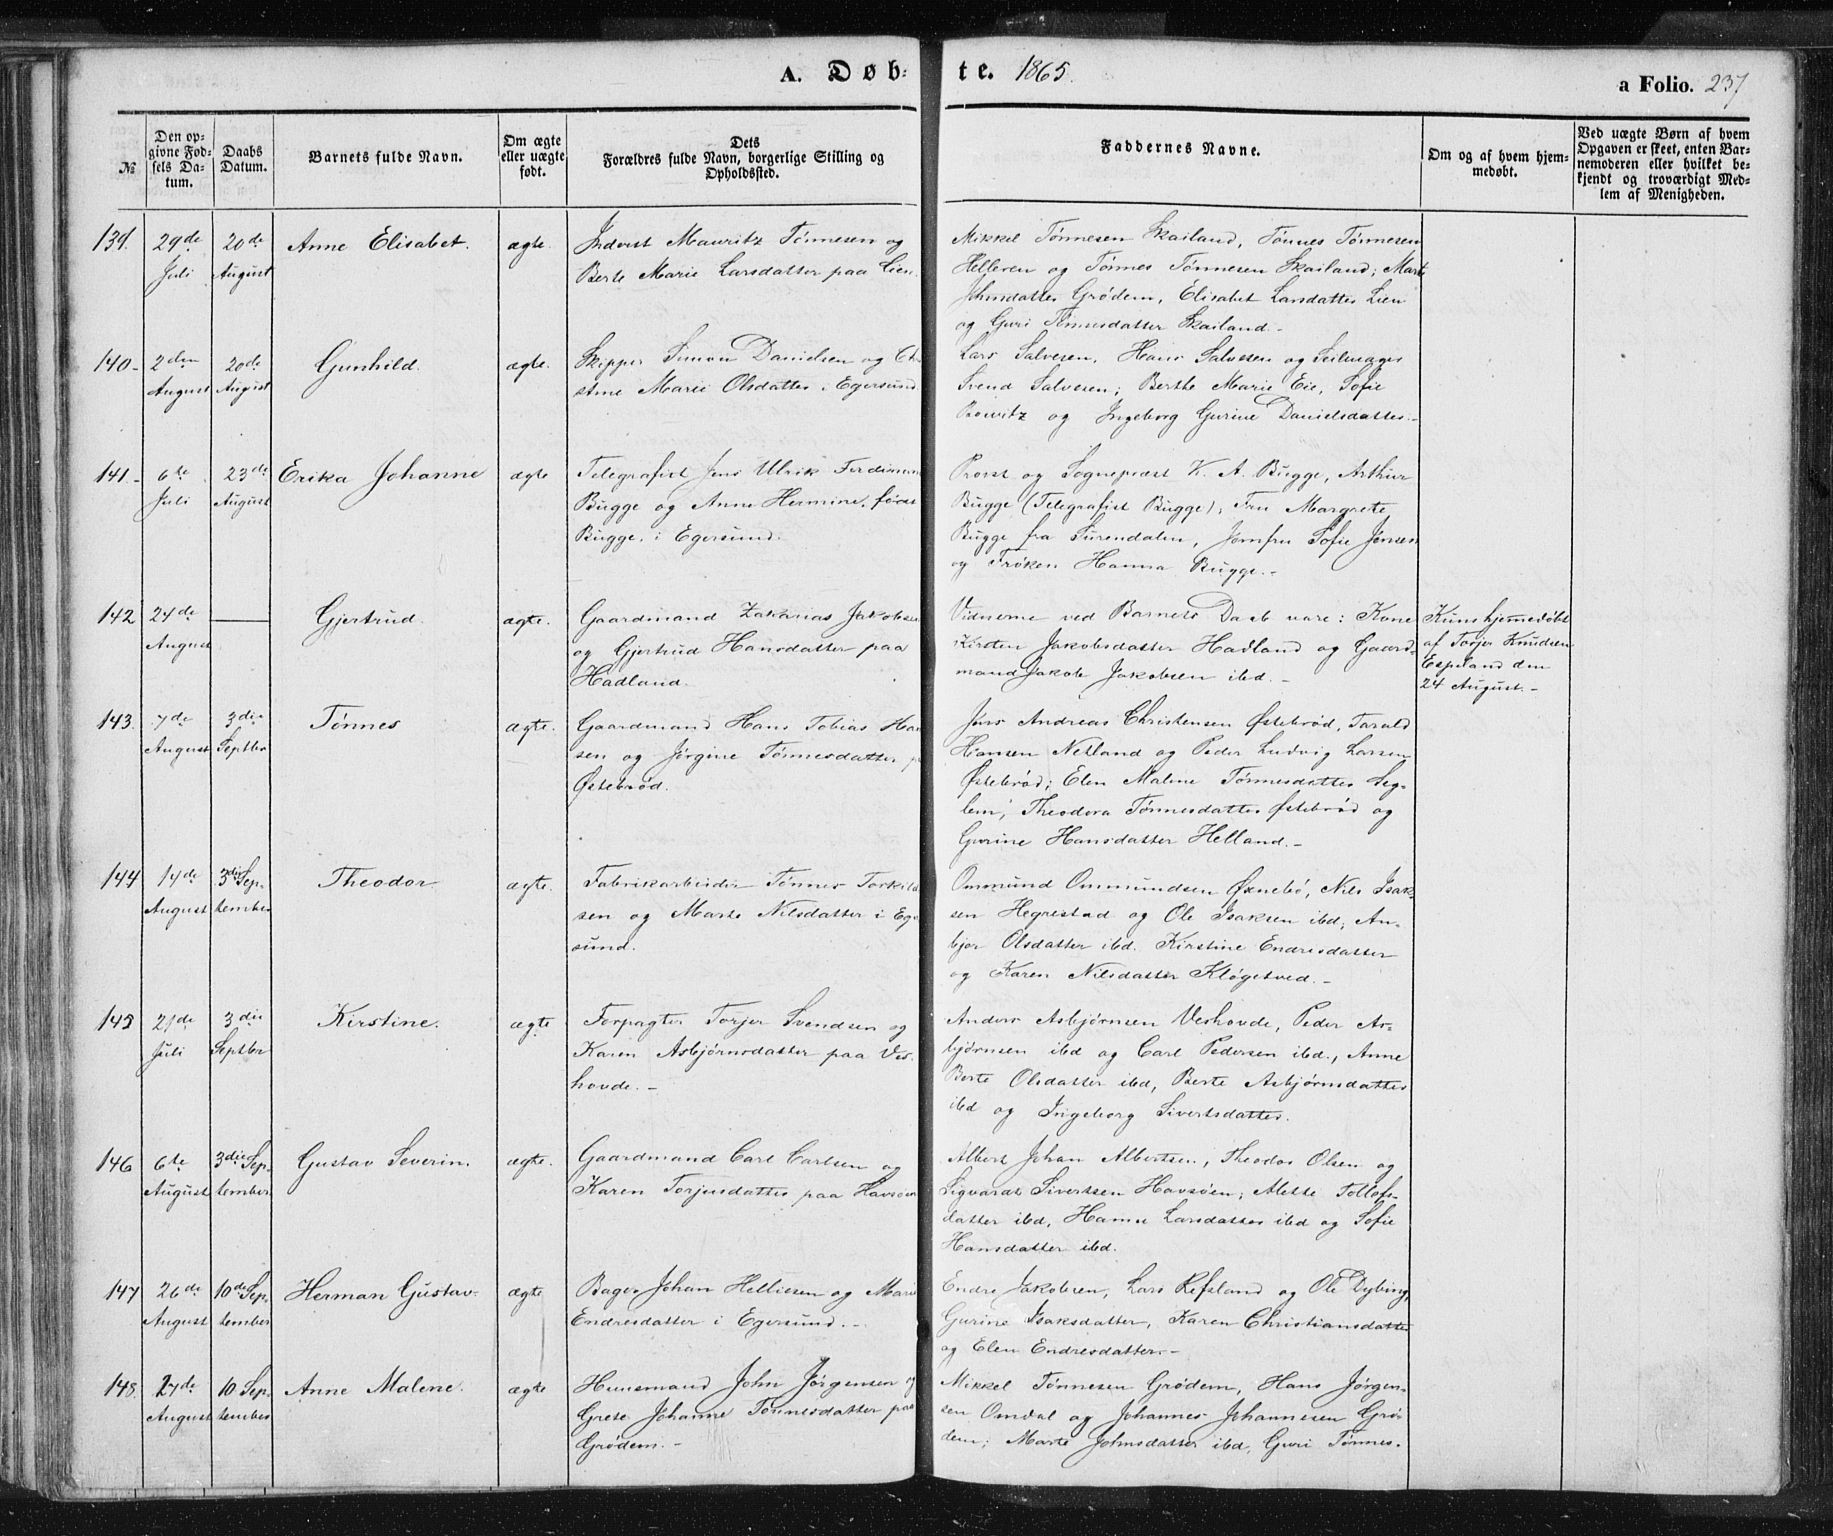 A. Døb-
te. 1865.
a Folio. 237
№
Den op-
givne Fød-
sels Da-
tum.
Daabs
Datum.
Barnets fulde Navn.
Om ægte
eller uægte
født.
Dets
Forældres fulde Navn, borgerlige Stilling og
Opholdssted.
Faddernes Navne.
Om og af hvem hjem-
medøbt.
Ved uægte Børn af hvem
Opgaven er skeet, enten Bar-
nemoderen eller hvilket be-
kjendt og troværdigt Med-
lem af Menigheden.
139. 29de Juli
20de August
Anne Elisabet.
ægte.
Inderst Mauritz Tønnesen og
Berte Marie Larsdatter paa Lien.
Mikkel Tønnesen Skailand, Tønnes Tønnesen
Helleren og Tønnes Tønnesen Skailand; Marte
Johnsdatter Grødem, Elisabet Larsdatter Lien
og Guri Tønnesdatter Skailand.-
140- 2den August
20de August
Gunhild.
ægte.
Skipper Simon Danielsen og
Marie Olsdatter i Egersund
Lars Salvesen, Hans Salvesen og Seilmager
Svend Salvesen; Berthe Marie Eie, Sofie
Bowitz og Ingeborg Gurine Danielsdatter.-
141- 6te Juli
23de August
Erika Johanne
ægte
Telegrafist Jens Ulrik Ferdinan
Bugge og Anne Hermine, født
Bugge, i Egersund.
Provst og Sognepræst K. A. Bugge, Arthur
Bugge (Telegrafist Bugge); Fru Margrete
Bugge fra Surendalen, Jomfru Sofie Jensen
og Frøken Hanna Bugge.-
142 24de August
—
Gjertrud.
ægte.
Gaardmand Zakarias Jakobsen
og Gjertrud Hansdatter paa
Hadland.
Vidnerne ved Barnets Daab vare: Kone
Kirsten Jakobsdatter Hadland og Gaard-
mand Jakob Jakobsen ibd.-
Kuns hjemmedøbt
af Torjer Knudsen
Espeland den
24 August.-
143. 7de August
3die Septbr
Tønnes
ægte.
Gaardmand Hans Tobias Han
sen og Jørgine Tønnesdatter p
Østebrød.
Jens Andreas Christensen Østebrød, Tarald
Hansen Netland og Peder Ludvig Larsen
Østebrød; Elen Malene Tønnesdatter Seg-
lem, Theodora Tønnesdatter Østebrød og
Gurine Hansdatter Helland.-
144 14de August
3die Sep-
tember
Theodor.
ægte.
Fabrikarbeider Tønnes Torkild
sen og Marte Nilsdatter i Eger
sund.
Ommund Ommundsen Øxnebø, Nils Isak-
sen Hegrestad og Ole Isaksen ibd; An-
bjør Olsdatter ibd. Kirstine Endresdatter
og Karen Nilsdatter Kløgetved.-
145 21de Juli
3die Septbr
Kirstine.
ægte
Forpagter Torjer Svendsen og
Karen Asbjørnsdatter paa Ves-
hovde.-
Anders Asbjørnsen Veshovde, Peder As-
bjørnsen ibd og Carl Pedersen ibd., Anne
Berte Olsdatter ibd, Berte Asbjørnsdatter
ibd og Ingeborg Sivertsdatter.
146 6te August
3die Sep-
tember
Gustav Severin.
ægte.
Gaardmand Carl Carlsen og
Karen Torjusdatter paa Havsøen
Albert Johan Albertsen, Theodor Olsen og
Sigvardt Sivertsen Havsøen; Mette Tollefs-
datter ibd, Hanne Larsdatter ibd og Sofie
Hansdatter ibd.
147 26de August
10de Sep-
tember
Herman Gustav.
ægte
Bager Johan Helliesen og Marie
Endresdatter i Egersund.-
Endre Jakobsen, Lars Refsland og Ole Dybing,
Gurine Isaksdatter, Karen Christiansdatter
og Elen Endresdatter.-
148. 27de August
10 Sep-
tember
Anne Malene.
ægte
Huusmand John Jørgensen og
Grete Johanne Tønnesdatter paa
Grødem.-
Mikkel Tønnesen Grødem, Hans Jørgen-
sen Omdal og Johannes Johannesen Grø-
dem; Marte Johnsdatter ibd, Guri Tønnes-